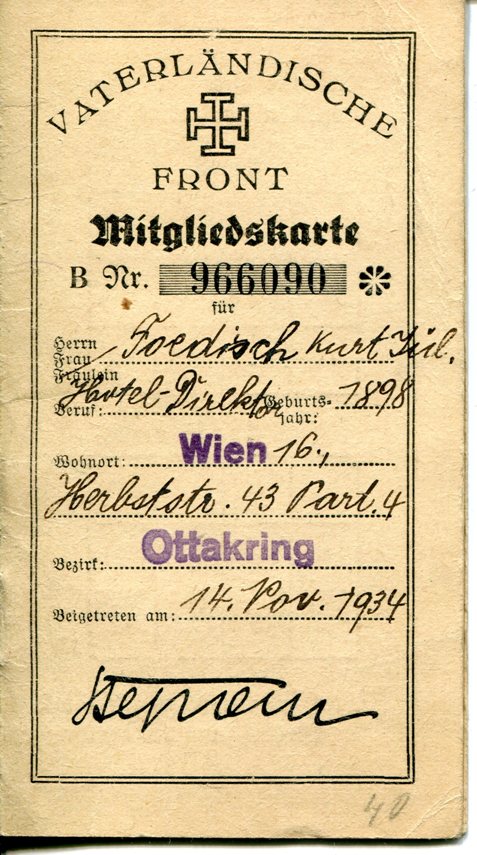 VATERLÄNDISCHE
FRONT
Mitgliedskarte
B Nr. 966090
für
Herrn
Frau Foedisch Kurt Jul.
Fräulein
Beruf: Hotel-Direktor Geburts-jahr: 1898
Wohnort: Wien 16.,
Herbststr. 43 Part. 4
Bezirk: Ottakring
Beigetreten am: 14. Nov. 1934
40